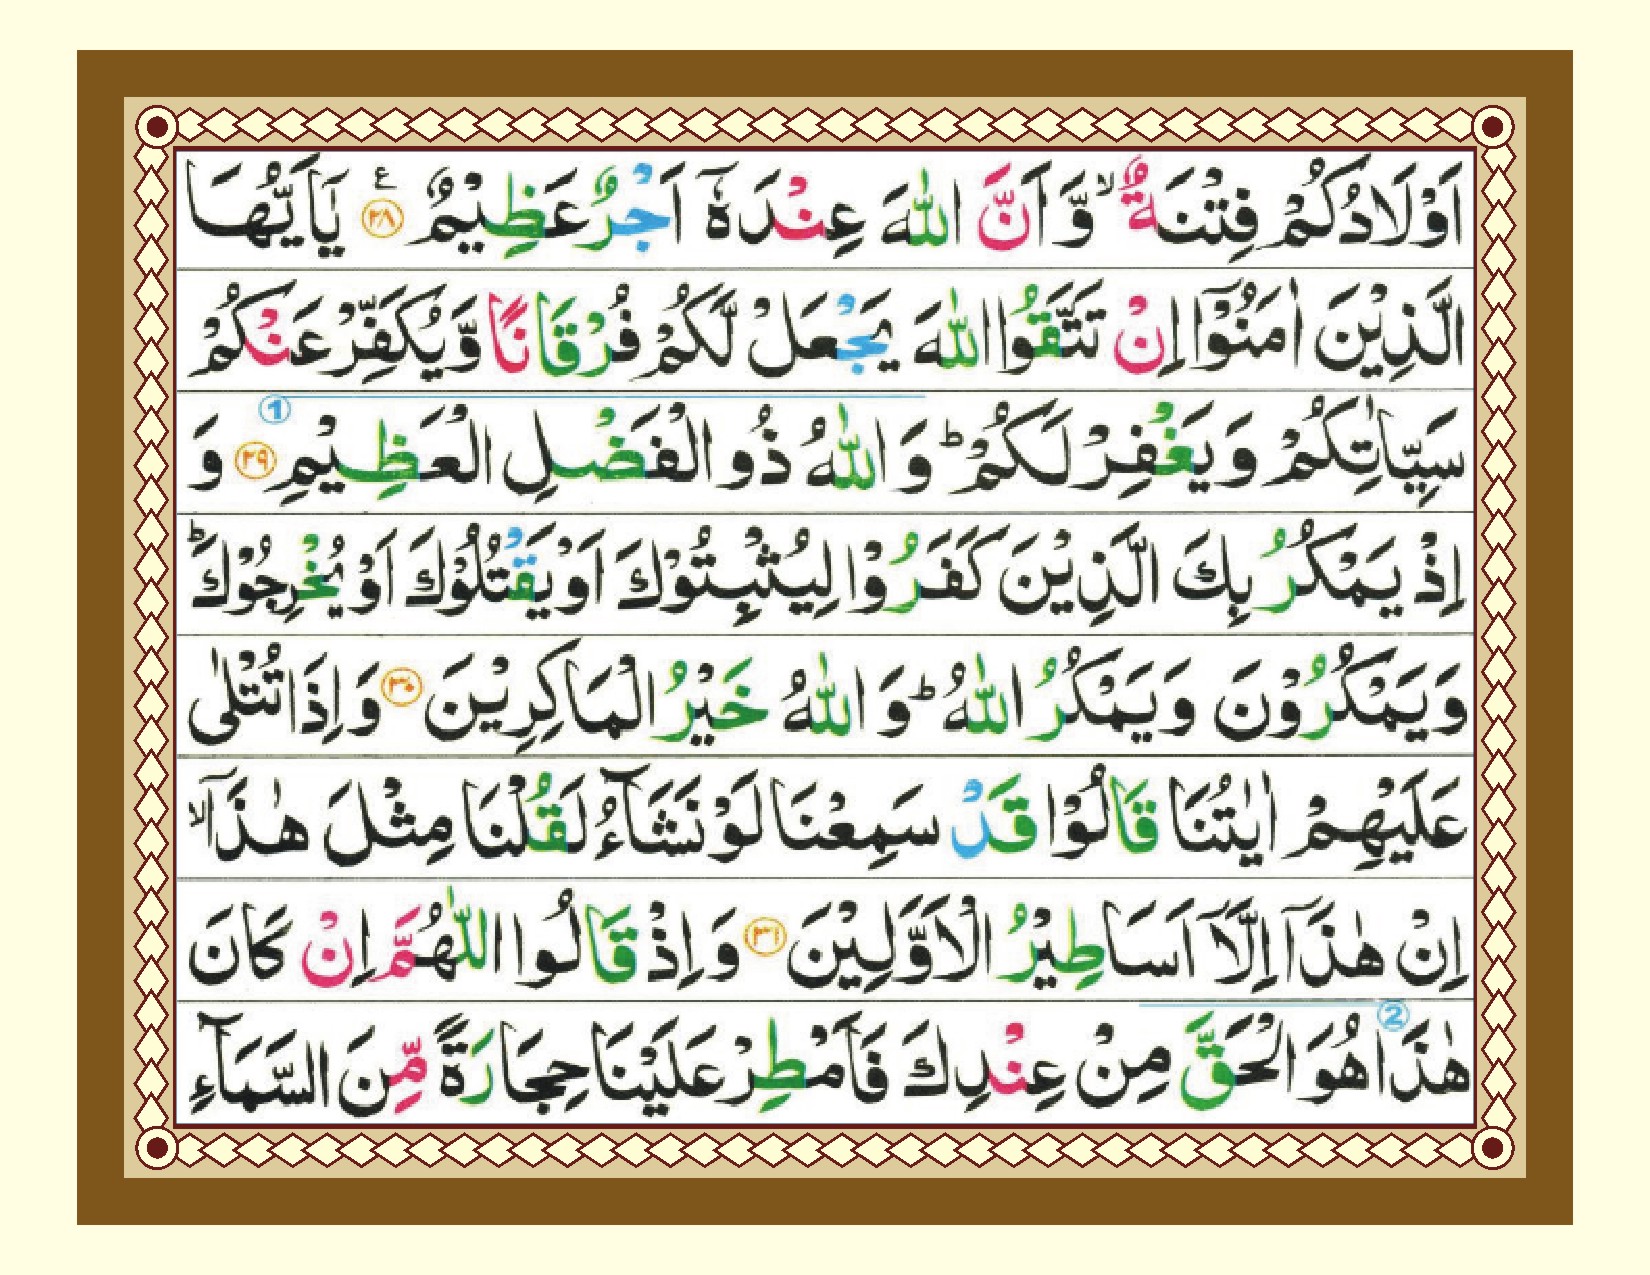 اَوْلَادُكُمْ فِتْنَةٌ ۙ وَّاَنَّ اللّٰهَ عِنْدَهٗٓ اَجْرٌ عَظِيْمٌ ﴿۲۸﴾ ع يٰٓاَيُّهَا
الَّذِيْنَ اٰمَنُوْٓا اِنْ تَتَّقُوا اللّٰهَ يَجْعَلْ لَّكُمْ فُرْقَانًا وَّيُكَفِّرْ عَنْكُمْ
سَيِّاٰتِكُمْ وَيَغْفِرْ لَكُمْ ؕ وَاللّٰهُ ذُو الْفَضْلِ الْعَظِيْمِ ﴿۲۹﴾ 1 وَ
اِذْ يَمْكُرُ بِكَ الَّذِيْنَ كَفَرُوْا لِيُثْبِتُوْكَ اَوْ يَقْتُلُوْكَ اَوْ يُخْرِجُوْكَ ؕ
وَيَمْكُرُوْنَ وَيَمْكُرُ اللّٰهُ ؕ وَاللّٰهُ خَيْرُ الْمَاكِرِيْنَ ﴿۳۰﴾ وَاِذَا تُتْلٰى
عَلَيْهِمْ اٰيٰتُنَا قَالُوْا قَدْ سَمِعْنَا لَوْ نَشَآءُ لَقُلْنَا مِثْلَ هٰذَآ ۙ
اِنْ هٰذَآ اِلَّآ اَسَاطِيْرُ الْاَوَّلِيْنَ ﴿۳۱﴾ وَاِذْ قَالُوا اللّٰهُمَّ اِنْ كَانَ
2 هٰذَا هُوَ الْحَقَّ مِنْ عِنْدِكَ فَاَمْطِرْ عَلَيْنَا حِجَارَةً مِّنَ السَّمَآءِ